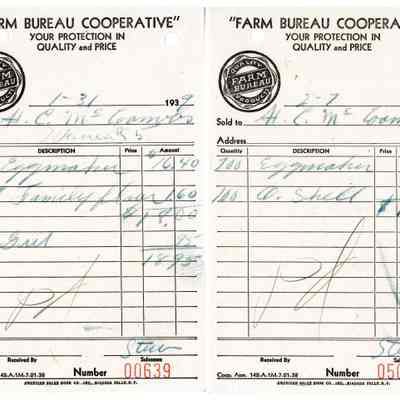 ARM BUREAU COOPERATIVE"
YOUR PROTECTION IN
QUALITY and PRICE
QUALITY
FARM
BUREAU
PRODUCTS
1-31 1939
H. C. McCombs
DESCRIPTION Price Amount
Eggmaker $16.40
Family flour 1.60
$18.00
.95
18.95
Pd
Received By Stew Salesman
14B-A.1M-7-01-38 Number 00639
AMERICAN SALES BOOK CO., INC., NIAGARA FALLS, N.Y.
"FARM BUREAU COOPERA
YOUR PROTECTION IN
QUALITY and PRICE
QUALITY
FARM
BUREAU
PRODUCTS
2-7
Sold to H. C. McCom
Address
Quantity DESCRIPTION Price
700 Eggmaker
100 O. Shell
Pd
Received By Stew Salesman
Coop. Assn. 14B-A.1M-7-01-38 Number 050
AMERICAN SALES BOOK CO., INC., NIAGARA FALLS, N.Y.